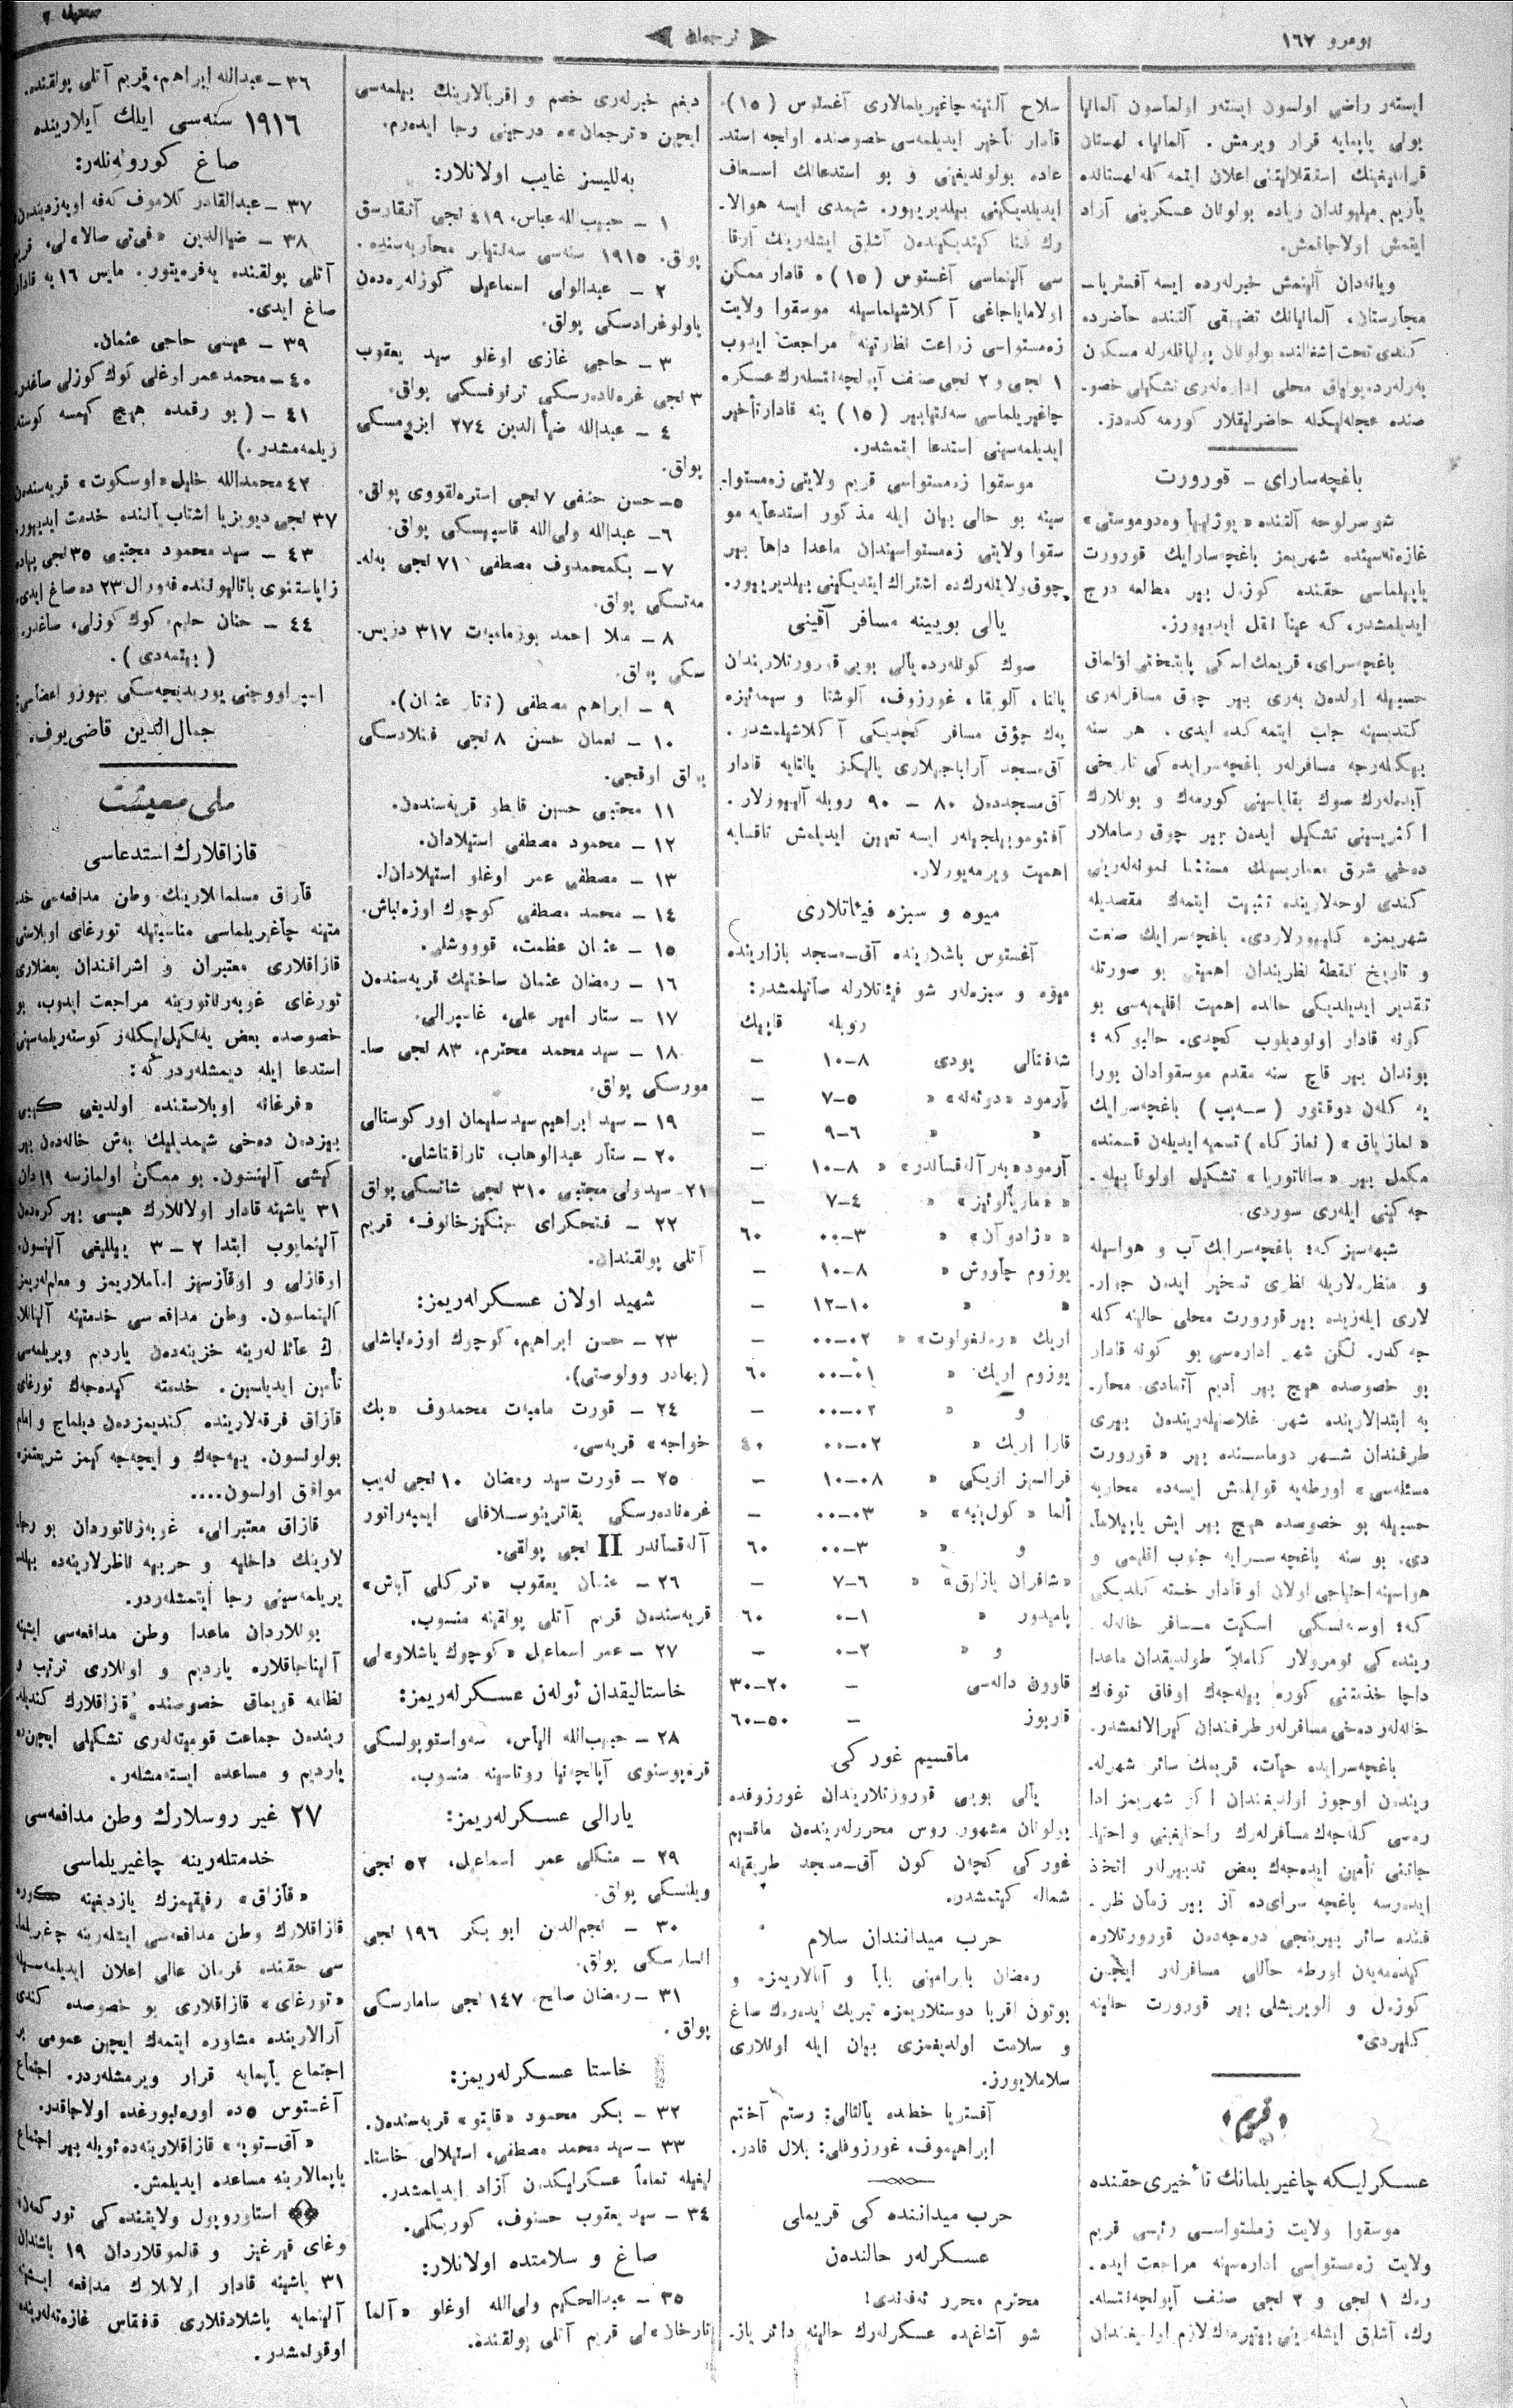 نومرو ١٦٧
ترجمان
صحیفه ٢
ایسته‌ر راضی اولسون ایسته‌ر اولماسون آلمانیا
بولی یاپمایه قرار ویرمش. آلمانیا، لهستان
قرالیغینك استقلالیتنی اعلان ایتمه‌كله لهستانده
یاریم میلیوندان زیاده بولونان عسكرینی آزاد
ایتمش اولاجاقمش.
ویانه‌دان آلنمش خبرلرده ایسه آفستریا-
مجارستان، آلمانیانك تضییقی آلتنده حاضرده
كندی تحت اشغالنده بولونان پولیاقلرله مسكون
یرلرده پولیاق محلی اداره‌لری تشكیلی خصو-
صنده عجله‌لیكله حاضرلیقلار كورمه‌كده‌در.
باغچه‌سارای - قورورت
شو سرلوحه آلتنده «یوژنییا وه‌دوموستی»
غازه‌ته‌سینده شهریمز باغچه‌سارایك قورورت
یاپیلماسی حقنده كوزل بیر مطالعه درج
ایدیلمشدر، كه عیناً نقل ایدییورز.
باغچه‌سرای، قریمك اسكی پایتختی اولماق
حسبیله اولدن بری بیر چوق مسافرلری
كندیسینه جلب ایتمه‌كده ایدی. هر سنه
بیكلرجه مسافرلر باغچه‌سرایده‌كی تاریخی
آبده‌لرك صوك بقایاسینی كورمك و بونلارك
اكثریسینی تشكیل ایدن بیر چوق رساملار
دخی شرق معماریسینك مستثنا نمونه‌لرینی
كندی لوحه‌لارینده تثبیت ایتمك مقصدیله
شهریمزه كلییورلاردی. باغچه‌سرایك صنعت
و تاریخ نقطهٔ نظریندان اهمیتی بو صورتله
تقدیر ایدیلدیكی حالده اهمیت اقلیمیه‌سی بو
كونه قادار اونودیلوب كچدی. حالبوكه؛
بوندان بیر قاچ سنه مقدم موسقوادان بورا
یه كلن دوقتور باغچه‌سرایك
«نمازیاق» (نماز كاه) تسمیه ایدیلن قسمنده
مكمل بیر «ساناتوریا» تشكیل اولونا بیله-
جه‌كینی ایلری سوردی.
شبهه‌سیز كه؛ باغچه‌سرایك آب و هواسیله
و منظره‌لاریله نظری تسخیر ایدن جوار-
لاری ایلریده بیر قورورت محلی حالینه كله
جه‌كدر. لكن شهر اداره‌سی بو كونه قادار
بو خصوصده هیچ بیر آدیم آتمادی. محار-
به ابتدالارینده شهر غلاصنیلریندن بیری
طرفندان شهر دوماسنده بیر «قورورت
مسئله‌سی» اورطه‌یه قونلمش ایسه‌ده محاربه
حسبیله بو خصوصده هیچ بیر ایش یاپیلاما-
دی. بو سنه باغچه‌سرایه جنوب اقلیمی و
هواسینه احتیاجی اولان او قادار خسته كلدیكی
كه؛ اوسه‌نسكی اسكیت مسافر خانه‌له
رینده‌كی نومرولار كاملاً طولدیقدان ماعدا
داچا خدمتنی كوره بیله‌جك اوفاق توفك
خانه‌لر دخی مسافرلر طرفندان كیرالانمشدر.
باغچه‌سرایده حیات، قریمك سائر شهرله-
ریندن اوجوز اولدیغندان اكر شهریمز ادا
ره‌سی كله‌جك مسافرلرك راحتلیغینی و احتیا-
جاتنی تأمین ایده‌جك بعض تدبیرلر اتخاذ
ایدرسه باغچه سرای‌ده آز بیر زمان ظر-
فنده سائر بیرینجی درجه‌دن قورورتلاره
كیده‌میه‌ن اورطه حاللی مسافرلر ایچین
كوزل و الویریشلی بیر قورورت حالینه
كلیردی.
قریم
عسكرلیكه چاغیریلمانك تأخیری حقنده
موسقوا ولایت زمستواسی رئیسی قریم
ولایت زه‌مستواسی اداره‌سینه مراجعت ایده-
رك ١ نجی و ٢ نجی صنف آپولچه‌نتسله-
رك، آشلق ایشلرینی بیتیرمك لازم اولدیغندان
سلاح آلتینه چاغیریلمالاری آغستوس (١٥)ه
قادار تأخیر ایدیلمه‌سی خصوصنده اولجه استد-
عاده بولوندیغینی و بو استدعانك اسعاف
ایدیلدیكینی بیلدیرییور. شیمدی ایسه هوالا-
رك فنا كیتدیكیندن آشلق ایشلرینك آرقا
سی آلینماسی آغستوس (١٥)ه قادار ممكن
اولامایاجاغی آكلاشیلماسیله موسقوا ولایت
زه‌مستواسی زراعت نظارتینه مراجعت ایدوب
١ نجی و ٢ نجی صنف آپولچه‌نتسلرك عسكره
چاغیریلماسی سه‌نتیابیر (١٥) ینه قادار تأخیر
ایدیلمه‌سینی استدعا ایتمشدر.
موسقوا زه‌مستواسی قریم ولایتی زه‌مستوا-
سینه بو حالی بیان ایله مذكور استدعایه مو
سقوا ولایتی زه‌مستواسیندان ماعدا داها بیر
چوق ولایتلرك‌ده اشتراك ایتدیكینی بیلدیرییور.
یالی بویینه مسافر آقینی
صوك كونلرده یالی بویی قورورتلاریندان
یالتا، آلوپقا، غورزوف، آلوشتا و سیمه‌ئیزه
پك چوق مسافر كچدیكی آكلاشیلمشدر.
آق‌مسجد آراباجیلاری یالیكز یالتایه قادار
آق‌مسجددن ٨٠ - ٩٠ روبله آلییورلار.
آفتوموبیلجیلر ایسه تعیین ایدیلمش تاقسایه
اهمیت ویرمه‌یورلار.
میوه و سبزه فیئاتلاری
آغستوس باشلارینده آق-مسجد بازارینده
میوه و سبزه‌لر شو فیئاتلارله صاتیلمشدر:
روبله قاپیك
شفتالی پودی ٨-١٠ -
آرمود «دوئه‌له» « ٥-٧ -
« « ٦-٩ -
آرمود «به‌ر آله‌قساندر» « ٨-١٠ -
« « « ٤-٧ -
« « « ٣-٠٠ ٦٠
یوزوم چاووش « ٨-١٠ -
« « ١٠-١٢ -
اریك « « ٠٢-٠٠ -
یوزوم اریك « ٠١-٠٠ ٦٠
و « ٠٢-٠٠ -
قارا اریك « ٠٢-٠٠ ٤٠
فرانسز اریكی « ٠٨-١٠ -
ألما « « ٠٣-٠٠ -
و « ٣-٠٠ ٦٠
« « ٦-٧ -
پامیدور « ١-٠ ٦٠
و « ٢-٠ -
قاوون دانه‌سی - ٢٠-٣٠
قارپوز - ٥٠-٦٠
ماقسیم غوركی
یالی بویی قورورتلاریندان غورزوفده
بولونان مشهور روس محررلریندن ماقسیم
غوركی كچن كون آق-مسجد طریقیله
شماله كیتمشدر.
حرب میدانندان سلام
رمضان بایرامینی بابا و آنالاریمزه و
بوتون اقربا دوستلاریمزه تبریك ایده‌رك صاغ
و سلامت اولدیغمزی بیان ایله اونلاری
سلاملایورز.
آفستریا خطده یالتالی: رستم آختم
ابراهیموف، غورزوفلی: بلال قادر.
حرب میداننده كی قریملی
عسكرلر حالندن
محترم محرر ئه‌فه‌ندی!
شو آشاغیده عسكرلرك حالینه دائر یاز-
دیغم خبرلری خصم و اقربالارینك بیلمه‌سی
ایچین «ترجمان»ه درجینی رجا ایدرم.
به‌للیسز غایب اولانلار:
١ - حبیب الله عباس، ٤١٩ نجی آتقارسق
پولق. ١٩١٥ سنه‌سی سه‌نتیابر محاربه‌سنده.
٢ - عبدالولی اسماعیل كوزله‌ره‌دن
پاولوغرادسكی پولق.
٣ - حاجی غازی اوغلو سید یعقوب
٣ نجی غره‌نادرسكی پولق.
٤ - عبدالله ضیأالدین ٢٧٤
پولق.
٥- حسن حنفی ٧ نجی پولق.
٦- عبدالله ولی‌الله قاسپیسكی پولق.
٧ - بكمحمدوف مصطفی ٧١ نجی به‌له-
پولق.
٨ - ملا احمد ٣١٧
سكی پولق.
٩ - ابراهم مصطفی (تاتار عثمان).
١٠ - نعمان حسن ٨ نجی فنلاندسكی
پولق اوقجی.
١١ - مجتبی حسین قریه‌سندن.
١٢ - محمود مصطفی استیلادان.
١٣ - مصطفی عمر اوغلو استیلادان.
١٤ - محمد مصطفی كوچوك اوزه‌نباش.
١٥ - عثمان عظمت،
١٦ - رمضان عثمان قریه‌سندن
١٧ - ستار امیر علی، غاسپرالی.
١٨ - سید محمد محترم. ٨٣ نجی صا-
مورسكی پولق.
١٩ - سید ابراهیم سید سلیمان اوركوستالی
٢٠ - ستار عبدالوهاب، تاراقتاشلی.
٢١- سید ولی مجتبی ٣١٠ نجی پولق
٢٢ - فتحكرای قریم
آتلی پولقندان.
شهید اولان عسكرلریمز:
٢٣ - حسن ابراهیم، كوچوك اوزه‌نباشلی
(بهادر وولوستی).
٢٤ - قورت محمدوف «بك
خواجه» قریه‌سی.
٢٥ - قورت سید رمضان ١٠ نجی له‌یب
غره‌نادرسكی یقاترینوسلافلی ایمپه‌راتور
آله‌قساندر II نجی پولقی.
٢٦ - عثمان یعقوب
قریه‌سندن قریم آتلی پولقینه منسوب.
٢٧ - عمر اسماعیل
خاستالیقدان ئولن عسكرلریمز:
٢٨ - حبیب‌الله الیاس، سه‌واستوپولسكی
منسوب.
یارالی عسكرلریمز:
٢٩ - منكلی عمر اسماعیل، ٥٢ نجی
ویلنسكی پولق.
٣٠ - نجم‌الدین ابو بكر ١٩٦ نجی
انسارسكی پولق.
٣١ - رمضان صالح. ١٤٧ نجی سامارسكی
پولق.
خاستا عسكرلریمز:
٣٢ - بكر محمود قریه‌سندن.
٣٣ - سید محمد مصطفی، خاستا-
لیغیله تماماً عسكرلیكدن آزاد ایدیلمشدر.
٣٤ - سید یعقوب حسنوف،
صاغ و سلامتده اولانلار:
٣٥ - عبدالحكیم ولی‌الله اوغلو «آلما
تارخان»لی قریم آتلی پولقنده.
٣٦ - عبدالله ابراهیم، قریم آتلی پولقنده.
١٩١٦ سنه‌سی ایلك آیلارینده
صاغ كورونه‌نلر:
٣٧ - عبدالقادر كلاموف كفه اویه‌زدیندن
٣٨ - ضیاالدین
آتلی پولقنده یه‌فره‌یتور. مایس ١٦ یه قادار
صاغ ایدی.
٣٩ - عیسی حاجی عثمان.
٤٠ - محمد عمر اوغلی كوك كوزلی صاغدر.
٤١ - (بو رقمده هیچ كیمسه كوسته
ریلمه‌مشدر.)
٤٢ محمدالله خلیل «اوسكوت» قریه‌سندن
٣٧ نجی دیویزیا اشتاب یاننده خدمت ایدییور.
٤٣ - سید محمود مجتبی ٣٥ نجی پیاده
زاپاسنوی باتالیوننده فه‌ورال ٢٣ ده صاغ ایدی.
٤٤ - حنان حلیم كوك كوزلی، صاغدر.
(بیتمه‌دی).
جمال الدین قاضی‌یوف.
ملی معیشت
قازاقلارك استدعاسی
قازاق مسلمانلارینك وطن مدافعه‌سی خد
متینه چاغیریلماسی مناسبتیله تورغای اوبلاستی
قازاقلاری معتبران و اشرافندان بعضلاری
تورغای غوبه‌رناتورینه مراجعت ایدوب، بو
خصوصده بعض یه‌نكیل‌لیكلر كوسته‌ریلمه‌سینی
استدعا ایله دیمشلردر كه:
«فرغانه اوبلاستنده اولدیغی كیبی
بیزدن دخی شیمدیلیك بش خانه‌دن بیر
كیشی آلینسون. بو ممكن اولمازسه ١٩ دان
٣١ یاشینه قادار اولانلارك هپسی بیر كره‌دن
آلینمایوب ابتدا ٢ - ٣ ییللیغی آلینسون.
اوقازلی و اوقازسیز امام‌لاریمز و معلم‌لریمز
آلینماسون. وطن مدافعه‌سی خدمتینه آلینانلا-
رك عائله‌لرینه خزینه‌دن یاردیم ویریلمه‌سی
تأمین ایدیلسین. خدمته كیده‌جك تورغای
قازاق فرقه‌لارینده كندیمزدن دیلماچ و امام
بولونسون. ییه‌جك و ایچه‌جه كیمز شریعتمزه
موافق اولسون....
قازاق معتبرانی، غوبه‌رناتوردان بو رجا-
لارینك داخلیه و حربیه ناظرلارینه‌ده بیلد-
یریلمه‌سینی رجا ایتمشلردر.
بونلاردان ماعدا وطن مدافعه‌سی ایشینه
آلیناجاقلاره یاردیم و اونلاری ترتیب و
نظامه قویماق خصوصنده قازاقلارك كندیله-
ریندن جماعت قومیته‌لری تشكیلی ایچین‌ده
یاردیم و مساعده ایسته‌مشلر.
٢٧ غیر روسلارك وطن مدافعه‌سی
خدمتلرینه چاغیریلماسی
«قازاق» رفیقیمزك یازدیغینه كوره
قازاقلارك وطن مدافعه‌سی ایشلرینه چاغریلما-
سی حقنده فرمان عالی اعلان ایدیلمه‌سیله
«تورغای» قازاقلاری بو خصوصده كندی
آرالارینده مشاوره ایتمك ایچین عمومی بر
اجتماع یاپمایه قرار ویرمشلردر. اجتماع
آغستوس ٥ده اوره‌نبورغده اولاجاقدر.
«آق-توبه» قازاقلارینه‌ده ئویله بیر اجتماع
یاپمالارینه مساعده ایدیلمش.
استاوروپول ولایتنده‌كی توركمن،
نوغای قیرغیز و قالموقلاردان ١٩ یاشندان
٣١ یاشینه قادار اولانلارك مدافعه ایشینه
آلینمایه باشلادقلاری قافقاس غازه‌ته‌لرینده
اوقونمشدر.